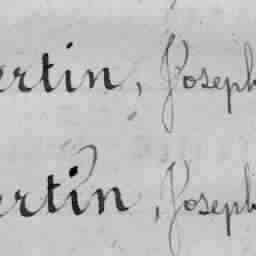 ertin, Joseph
ertin, Joseph